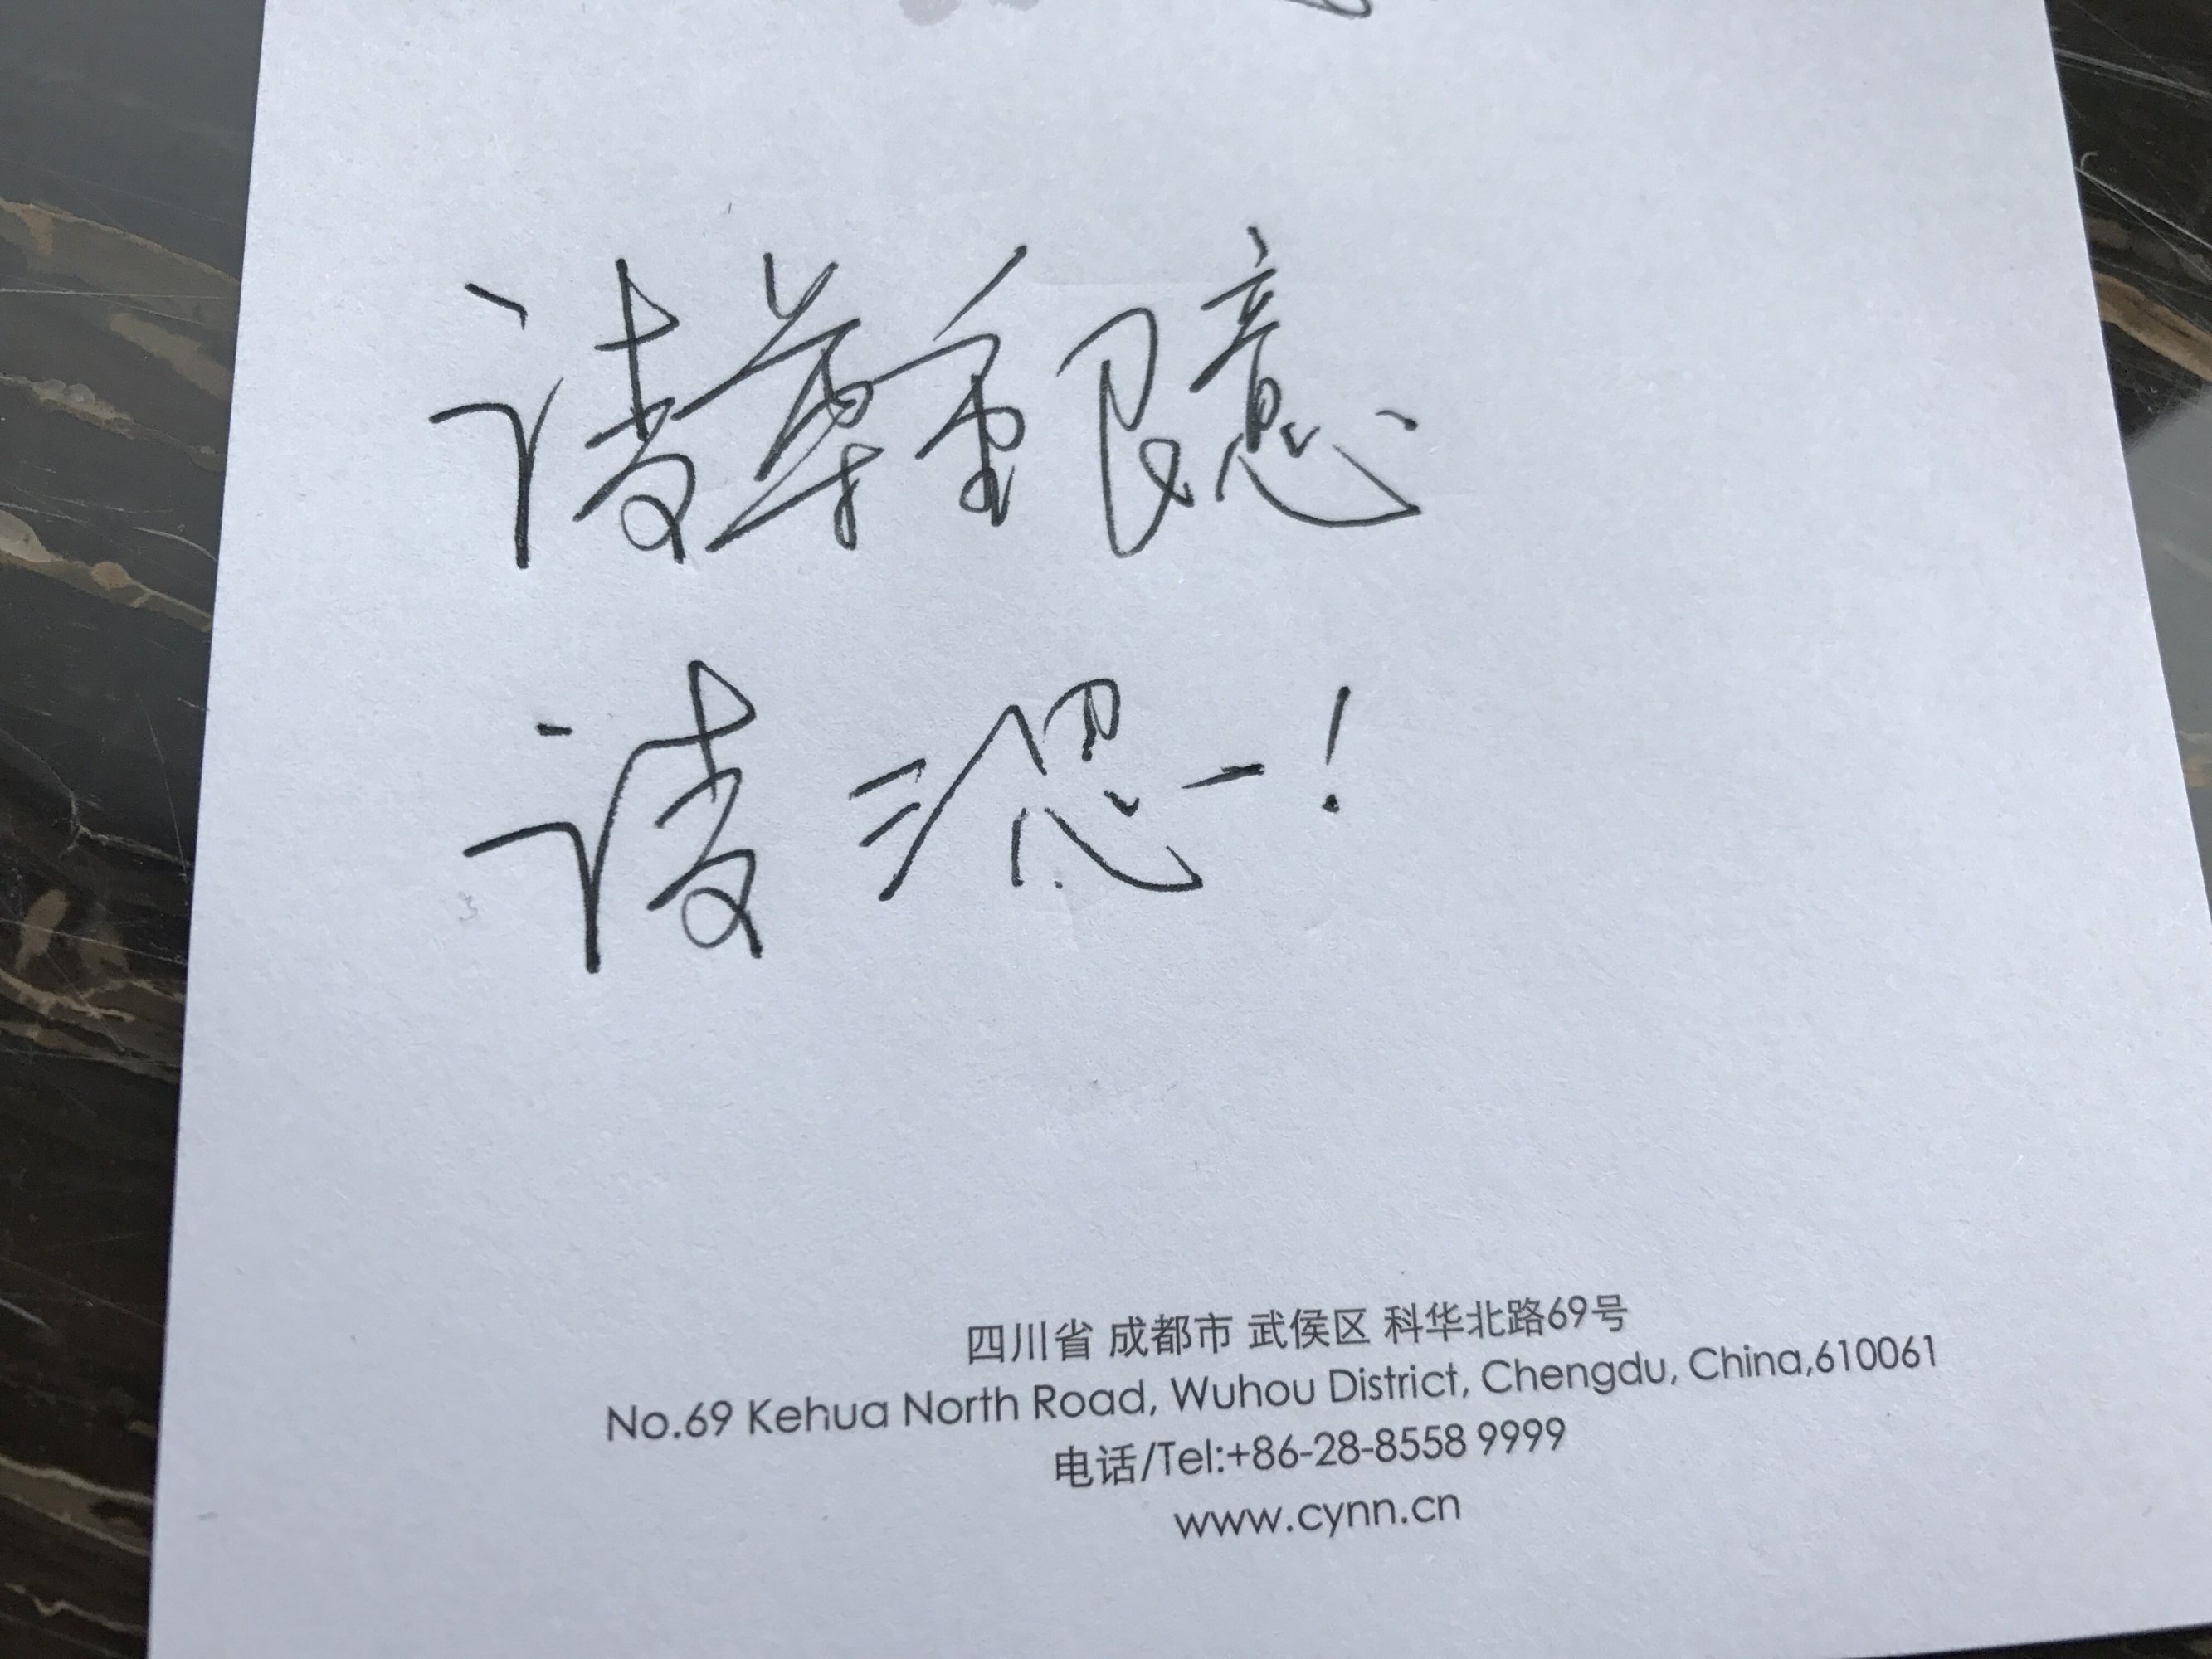 请尊重民意
请三思!
四川省 成都市 武侯区 科华北路69号
No.69 Kehua North Road, Wuhou District, Chengdu, China,610061
电话/Tel:+86-28-8558 9999
www.cynn.cn